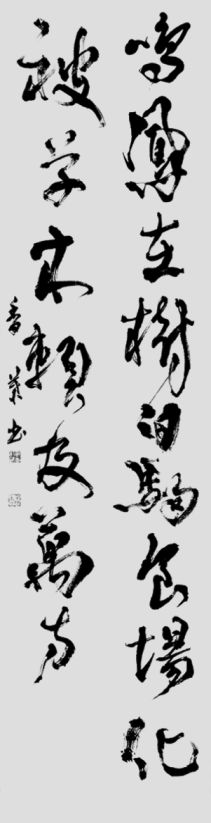 鳴鳳在樹白駒食場化
被草木賴及萬方
香 书